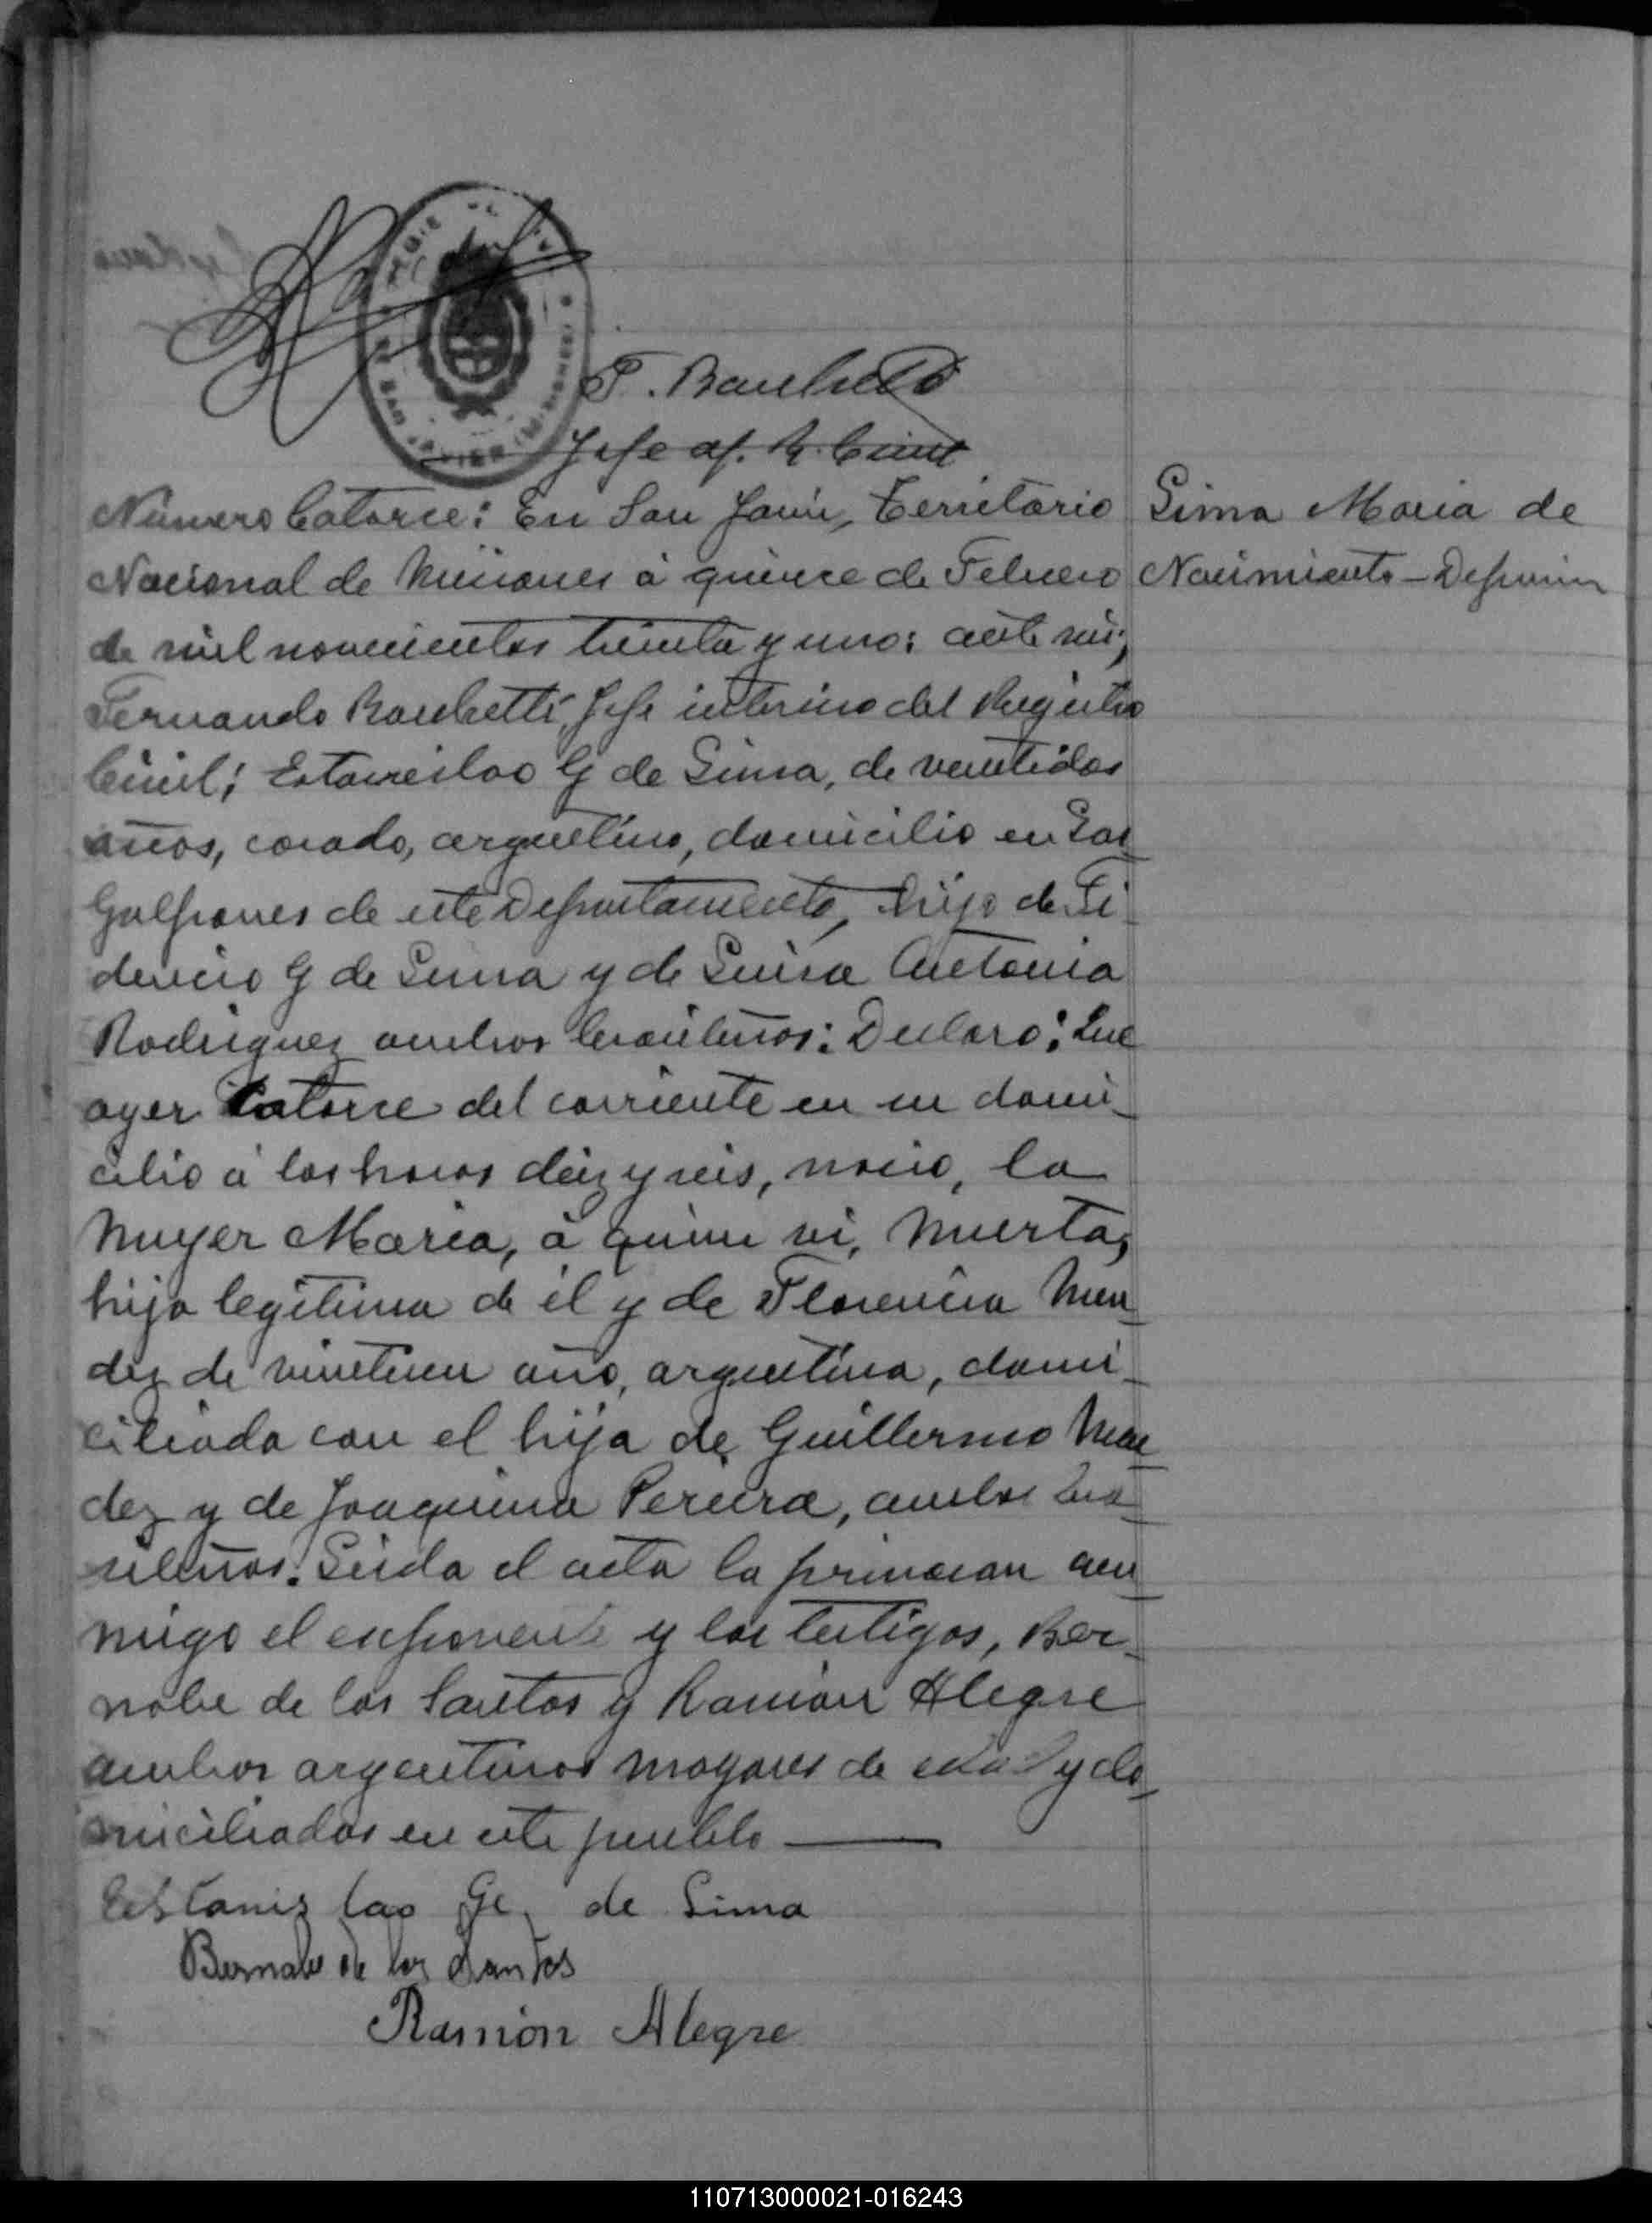 F. Bambetti
Jefe af. R. Civil
Número Catorce: En San Javier, Territorio
Nacional de Misiones á quince de Febrero
de mil novecientos treinta y uno: ante mi;
Fernando Jefe interino del Registro
Civil; Estanislao G de Lima, de veintidos
años, casado, argentino, domicilio en Los
Galpones de este Departamento, hijo de Fi-
dencio G de Lima y de Luisa Antonia
Rodriguez ambos brasileños: Declaro: Que
ayer Catorce del corriente en su domi-
cilio á las horas diez y seis, nacio, la
Muger Maria, á quien vi, Muerta,
hija legitima de él y de Florencia Men-
dez de año, argentina, domi-
ciliada con el hija de Guillermo Men-
dez y de Joaquina Pereira, ambos bra-
sileños. Leida el acta la firmaran con-
migo el exponente y los testigos, Ber-
nabe de los Santos y Ramón Alegre
ambos argentinos mayores de edad y do-
miciliados en este pueblo
Estanislao Ge. de Lima
Bernabe de los Santos
Ramón Alegre
Lima Maria de
Nacimiento - Defuncion
110713000021-016243